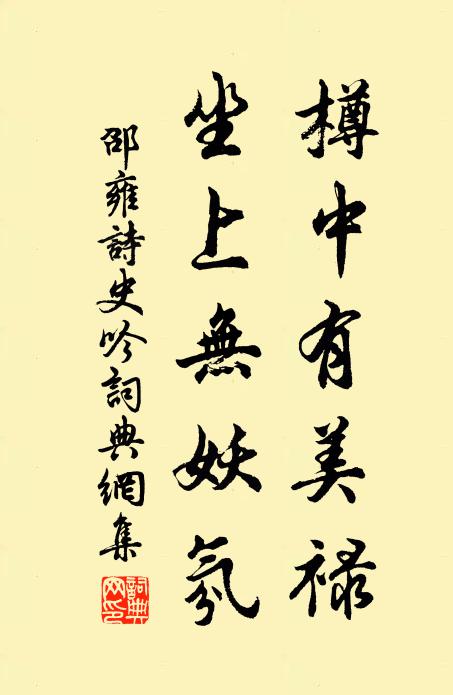 樽中有美禄
坐上無妖氛
邵雍詩史吟詞典網集
詞典網印